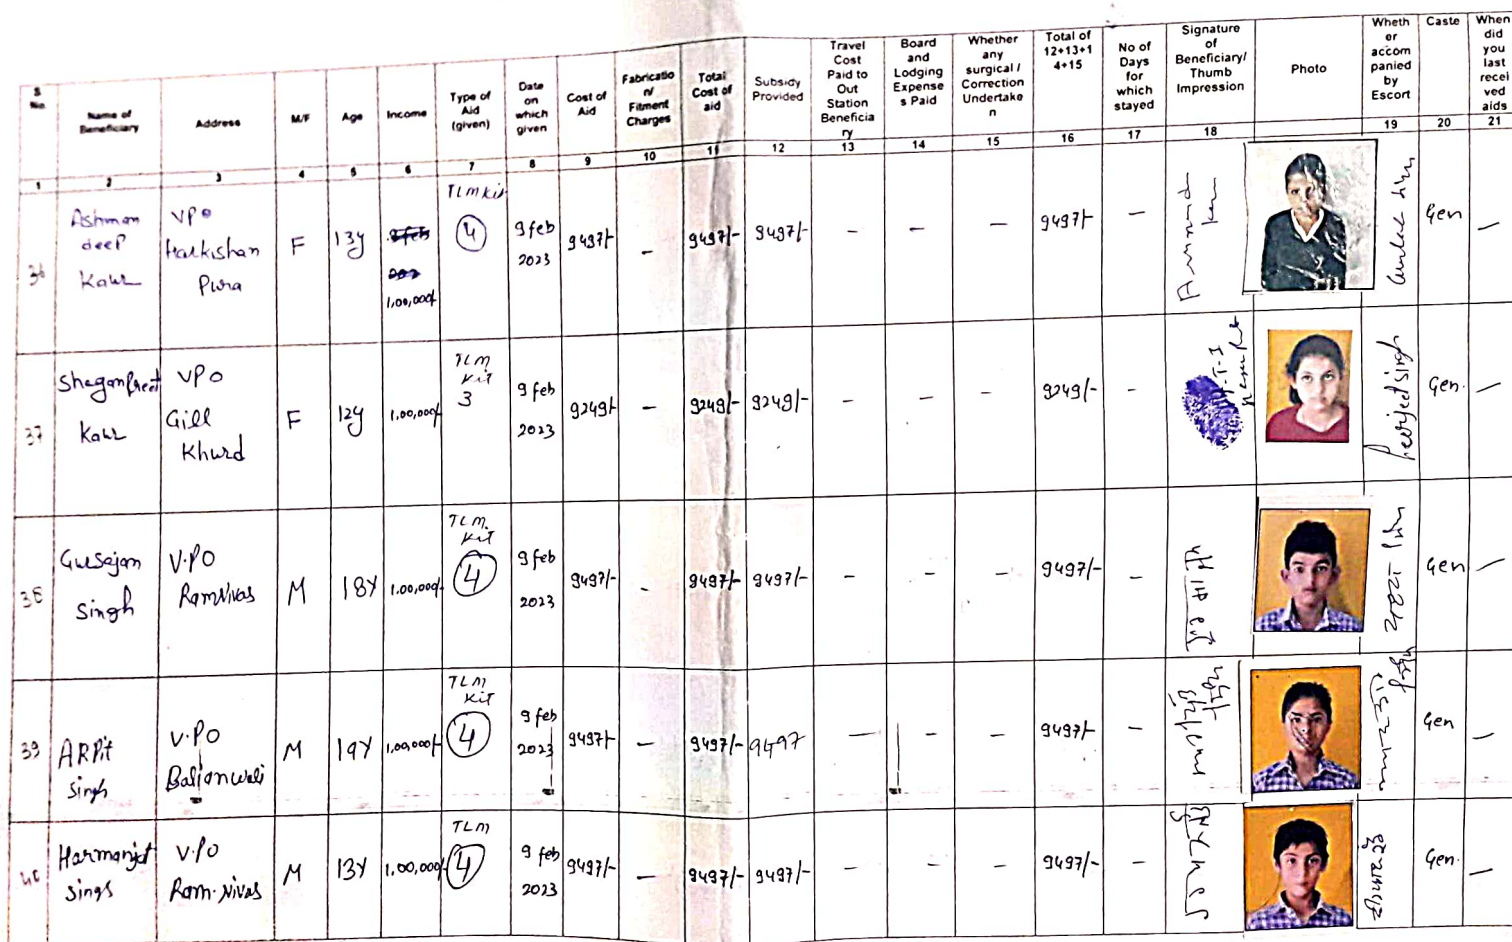 S No.
Name of Beneficiary
Address
M/F
Age
Income
Type of Aid (given)
Date on which given
Cost of Aid
Fabricatio n/ Fitment Charges
Total Cost of aid
Subsidy Provided
Travel Cost Paid to Out Station Beneficia ry
Board and Lodging Expense s Paid
Whether any surgical / Correction Undertake n
Total of 12+13+1 4+15
No of Days for which stayed
Signature of Beneficiary/ Thumb Impression
Photo
Wheth er accom panied by Escort
Caste
When did you last recei ved aids
1 2 3 4 5 6 7 8 9 10 11 12 13 14 15 16 17 18 19 20 21
36 Ashman deep Kaur VPO Harkishan Pura F 13y 1,00,000/- TLM Kit 4 9 feb 2023 9497/- – 9497/- 9497/- – – – 9497/- – Gen –
37 Shaganpreet Kaur VPO Gill Khurd F 12y 1,00,000/- TLM Kit 3 9 feb 2023 9249/- – 9249/- 9249/- – – – 9249/- – Gen. –
38 Gursajan Singh V.PO RamNivas M 18Y 1,00,000/- TLM Kit 4 9 feb 2023 9497/- – 9497/- 9497/- – – – 9497/- – Gen –
39 ARPit Singh V.PO Ballanwali M 19Y 1,00,000/- TLM Kit 4 9 feb 2023 9497/- – 9497/- 9497 – – – 9497/- – Gen –
40 Harmanjot Sings V.PO Ram.Nivas M 13Y 1,00,000/- TLM 4 9 feb 2023 9497/- – 9497/- 9497/- – – – 9497/- – Gen. –